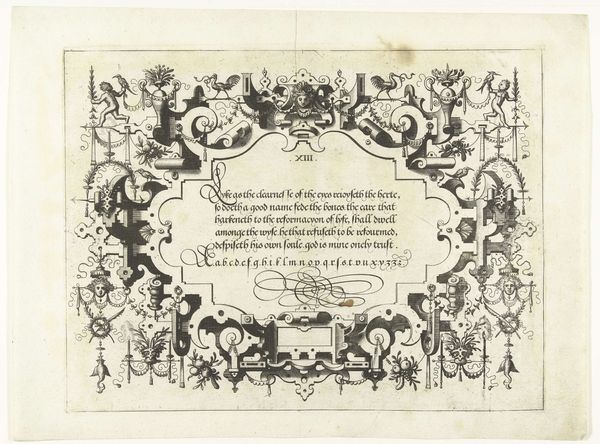 .XIII.
Lyke as the clearnesse of the eyes reioyseth the herte,
so doeth a good name fede the bones. the eare that
harkeneth to the reformacyon of lyfe, shall dwell
amonge the wyse. he that refuseth to be refourmed,
despiseth his own soule. god is mine onely trust.
A a b c d e f g h i k l m n o p q r s ſ t v u x y z &